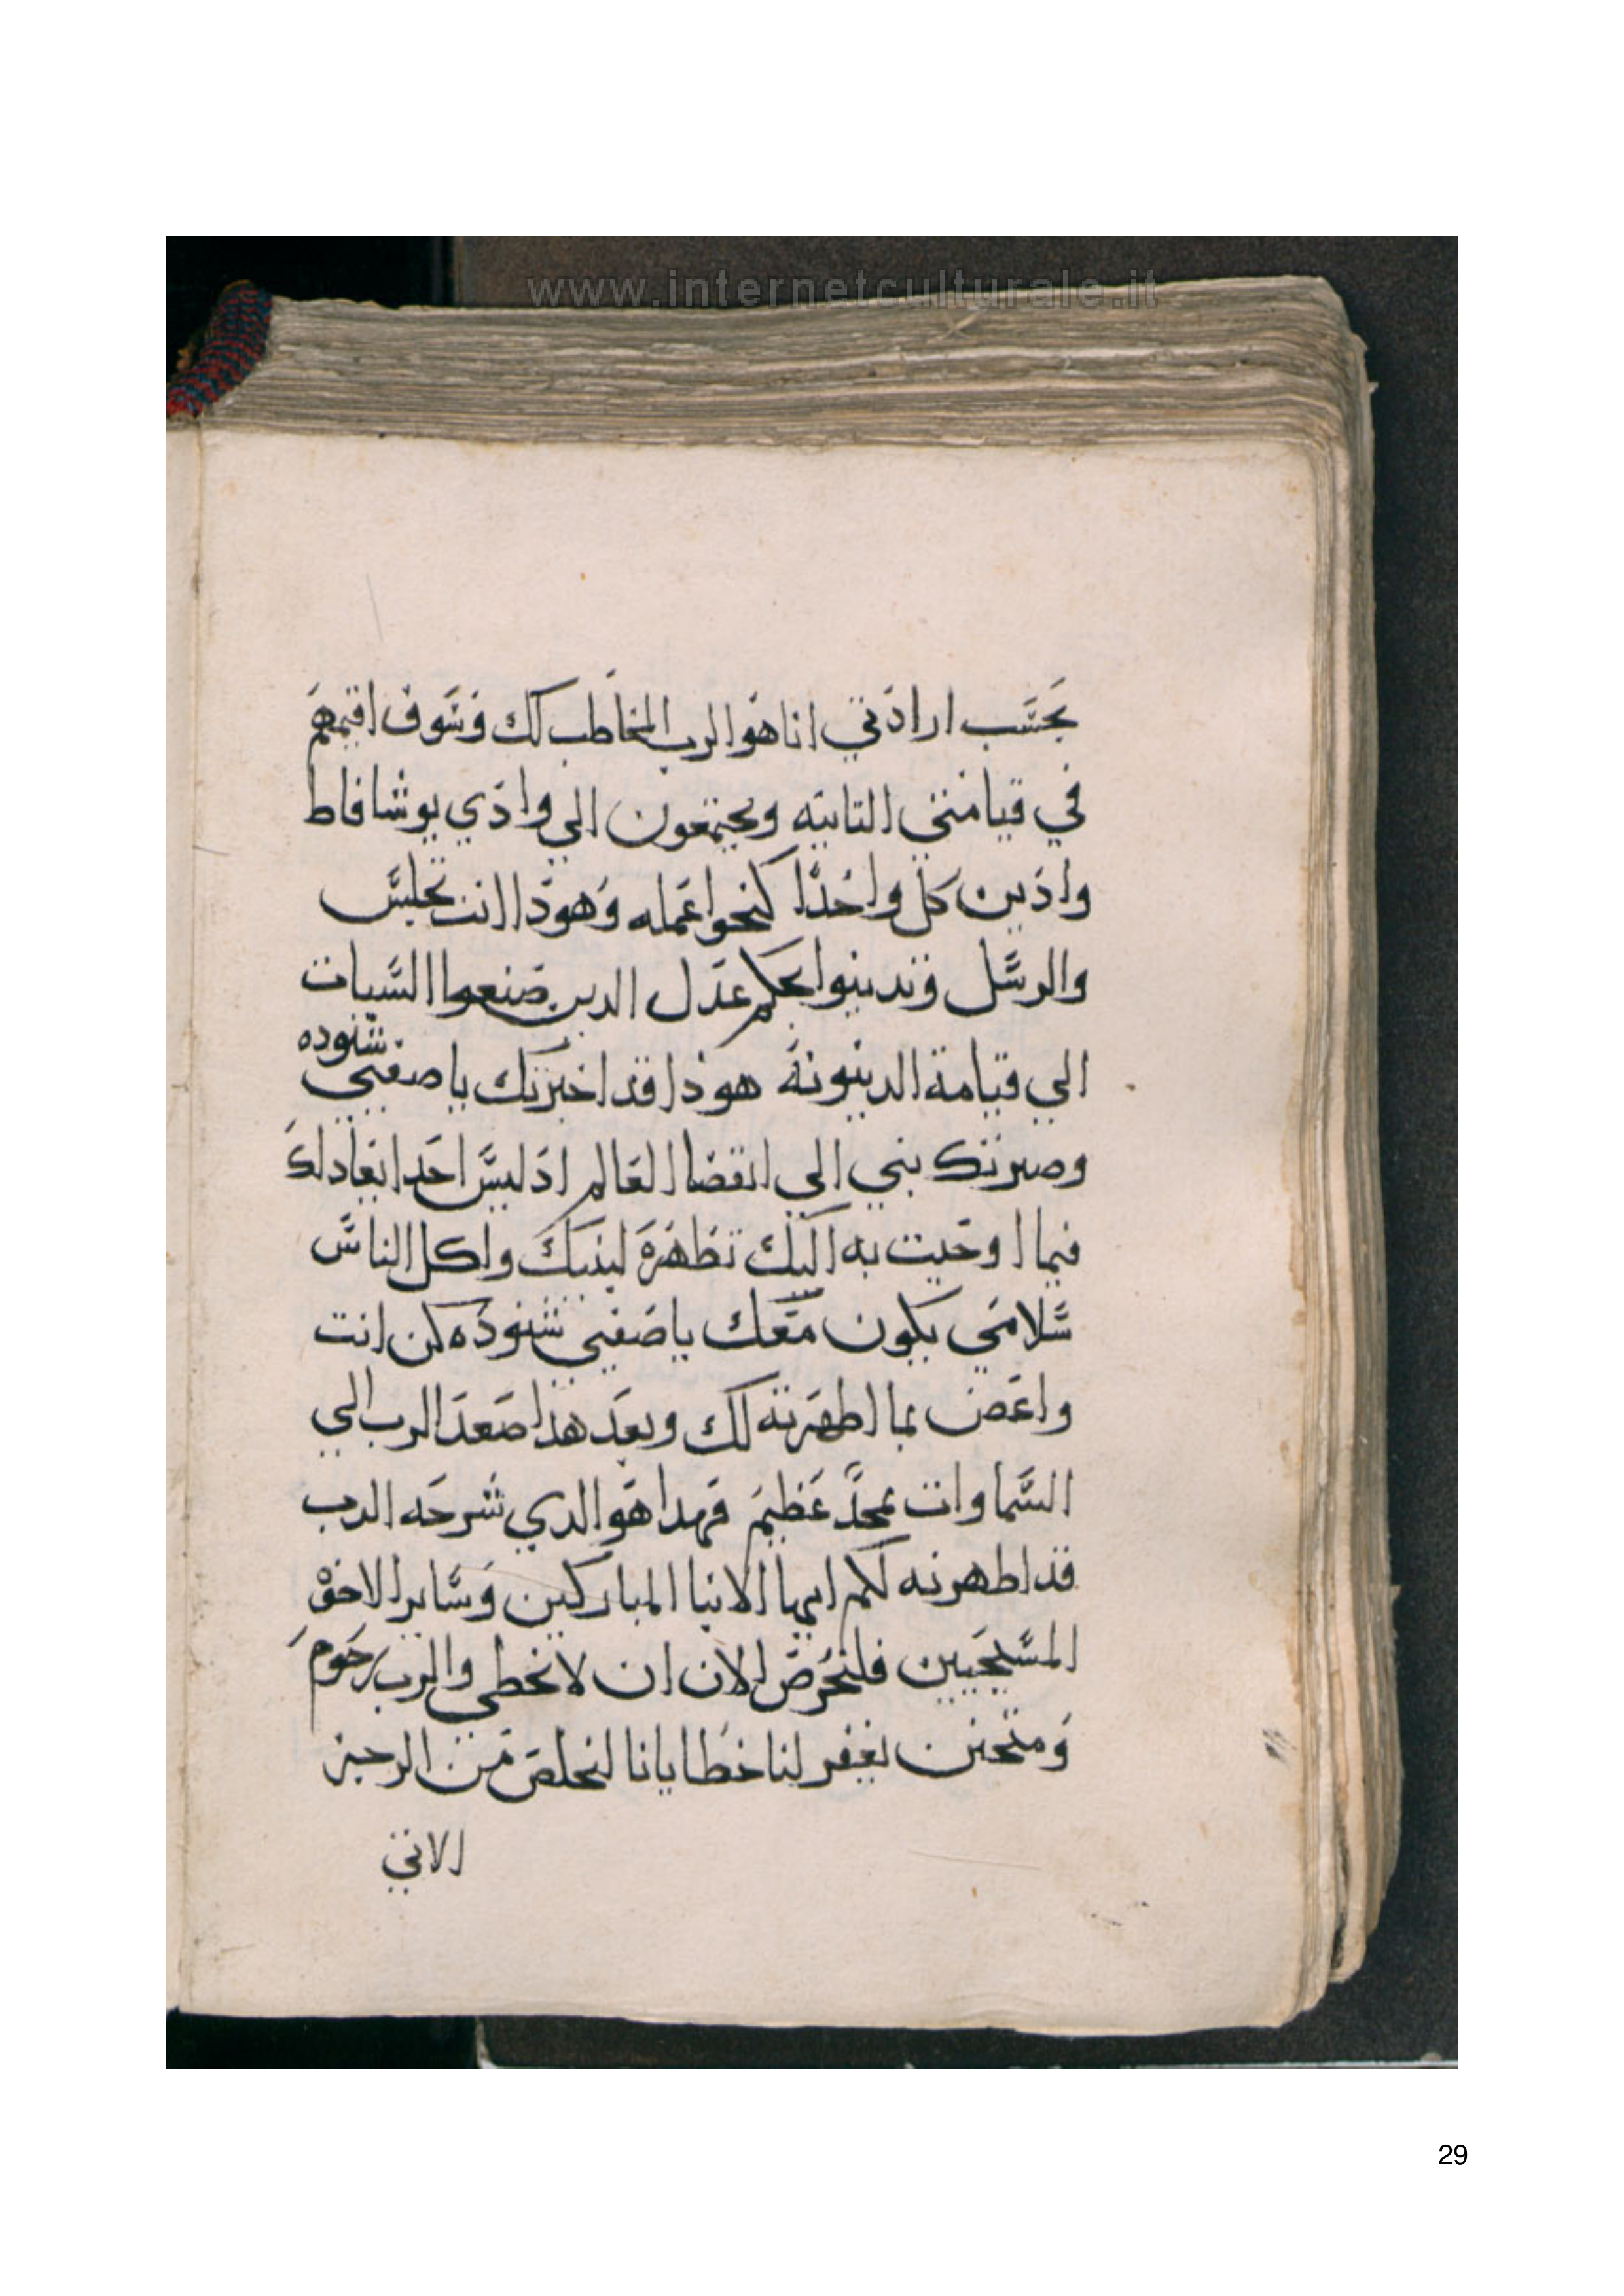 www.internetculturale.it
بحسب ارادتي انا هو الرب المخاطب لك وسوف اقيمهم
في قيامتي التانيه ويجتمعون الي وادي يوشافاط
وادين كل واحدا كنحوا عمله وهودا انت تجلس
والرسل وتدينوا بحكم عدل الدين صنعوا السيات
الي قيامة الدينونة هوذا قد اخبرتك يا صفيي شنوده
وصيرتك بني الي انقضا العالم اد ليس احدا يعادلك
فيما اوحيت به اليك تظهره لبنيك ولكل الناس
سلامي يكون معك يا صفيي شنوده كن انت
واعض بما اظهرته لك وبعد هدا صعد الرب الي
السماوات بمجد عظيم فهدا هو الدي شرحه الرب
قد اظهرته لكم ايها الابنا المباركين وساير الاخوة
المسيحيين فلنحرص الان ان لا نخطي والرب رحوم
ومتحنن يغفر لنا خطايانا لنخلص من الرجز
الاتي
29